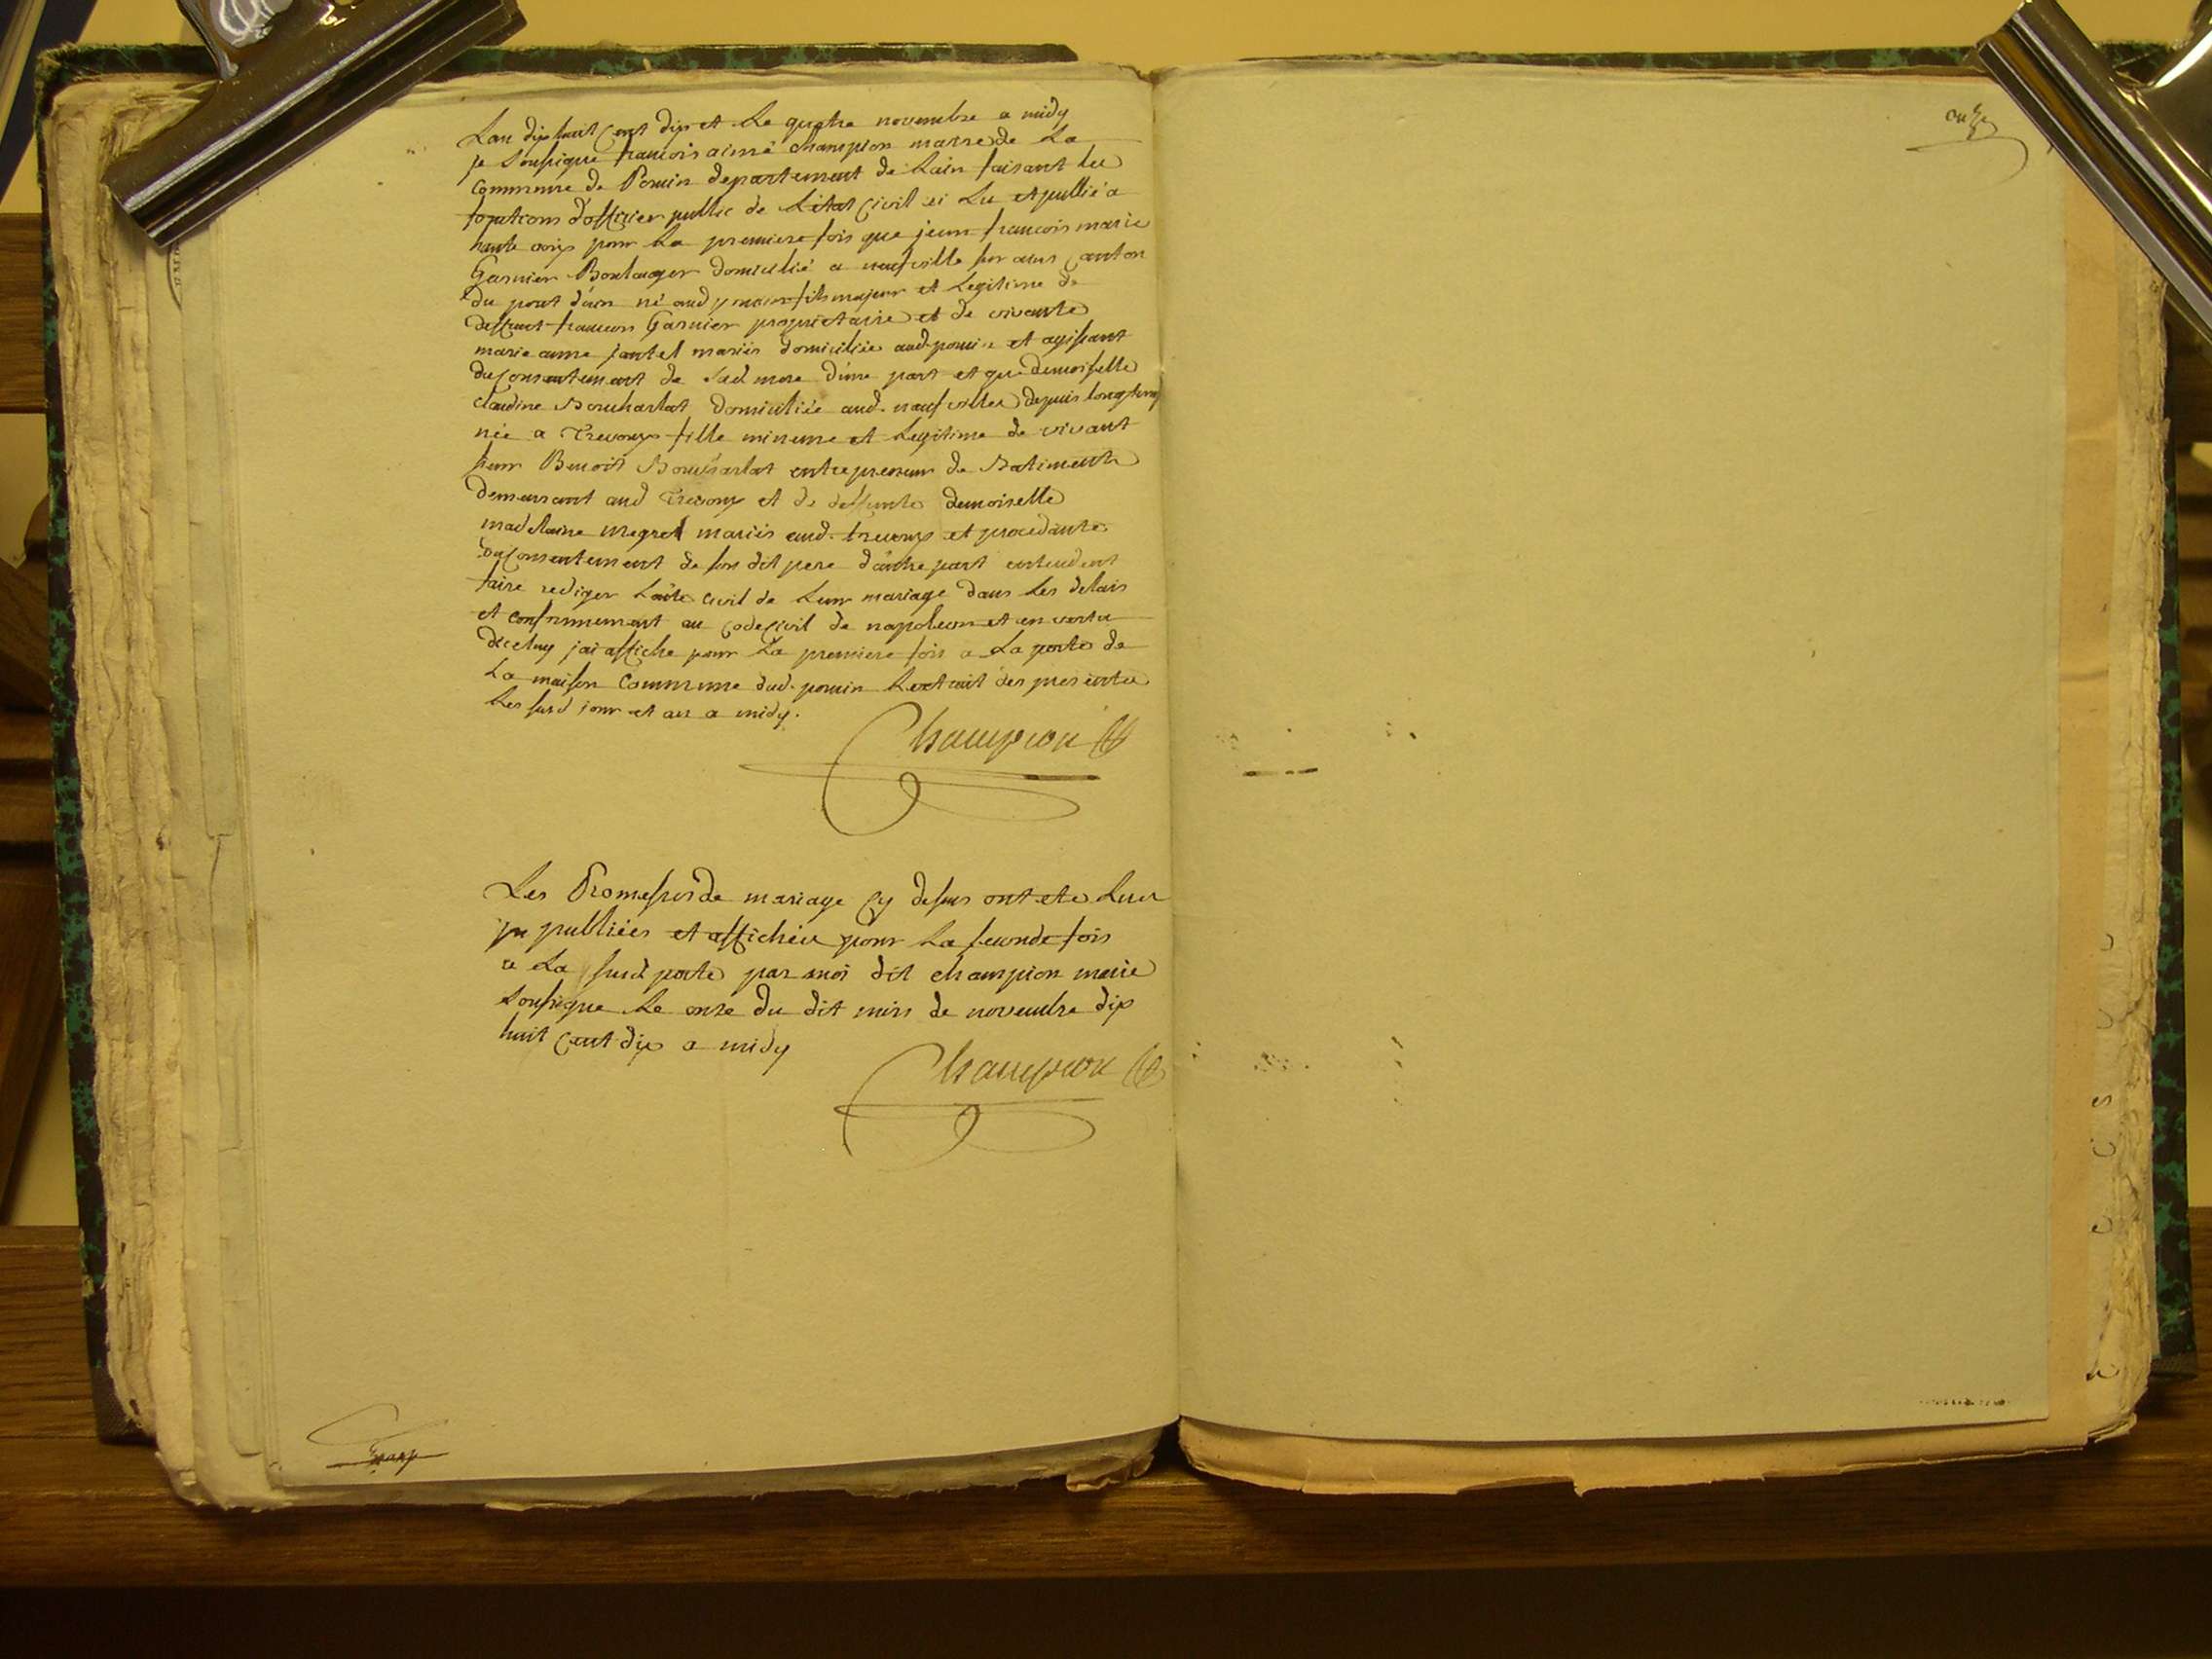 Lan dixhuit Cent dix et Le quatre novembre a midy
je Soussigné francois aimé Champion maire de La
Commune de Poncin departement de Lain faisant les
fonctions d'officier public de Létat Civil ai Lu et publié a
haute voix pour La premiere fois que jean francois marie
Garnier Boulanger domicilié a neufville sur ains Canton
du pont d'ain né aud poncin fils majeur et Legitime de
deffunt francois Garnier proprietaire et de vivante
marie anne jantet mariés domiciliée aud. poncin et agissant
du Consentement de Sad mere d'une part et que demoiselle
Claudine Boucharlat domiciliée aud. neufville depuis longtemp
née a Trevoux fille mineure et Legitime de vivant
sieur Benoit Boucharlat entrepreneur de Batiments
demeurant aud Trevoux et de deffunte demoiselle
madelaine megret mariés aud. trevoux et procedante
du Consentement de son dit pere d'autre part entendent
faire rediger Lacte Civil de Leur mariage dans Les delais
et conformement au Code Civil de napoleon et en vertu
diceluy jai affiché pour La premiere fois a La porte de
La maison Commune dud. poncin Lextrait des presentes
Les susd jour et an a midy.
Champion
Les Promesses de mariage Cy dessus ont ete Lues
publiées et affichées pour La seconde fois
a La susd porte par moi dit champion maire
Soussigné Le onze du dit mois de novembre dix
huit Cent dix a midy
Champion
onze